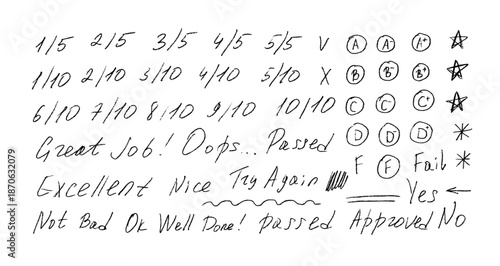 1/5 2/5 3/5 4/5 5/5 V A A- A+
1/10 2/10 3/10 4/10 5/10 X B B- B+
6/10 7/10 8/10 9/10 10/10 C C- C+
Great Job! Oops... Passed D D- D+
Excellent Nice Try Again F F Fail
Yes
Not Bad Ok Well Done! passed Approved No
Adobe Stock | #1870632079